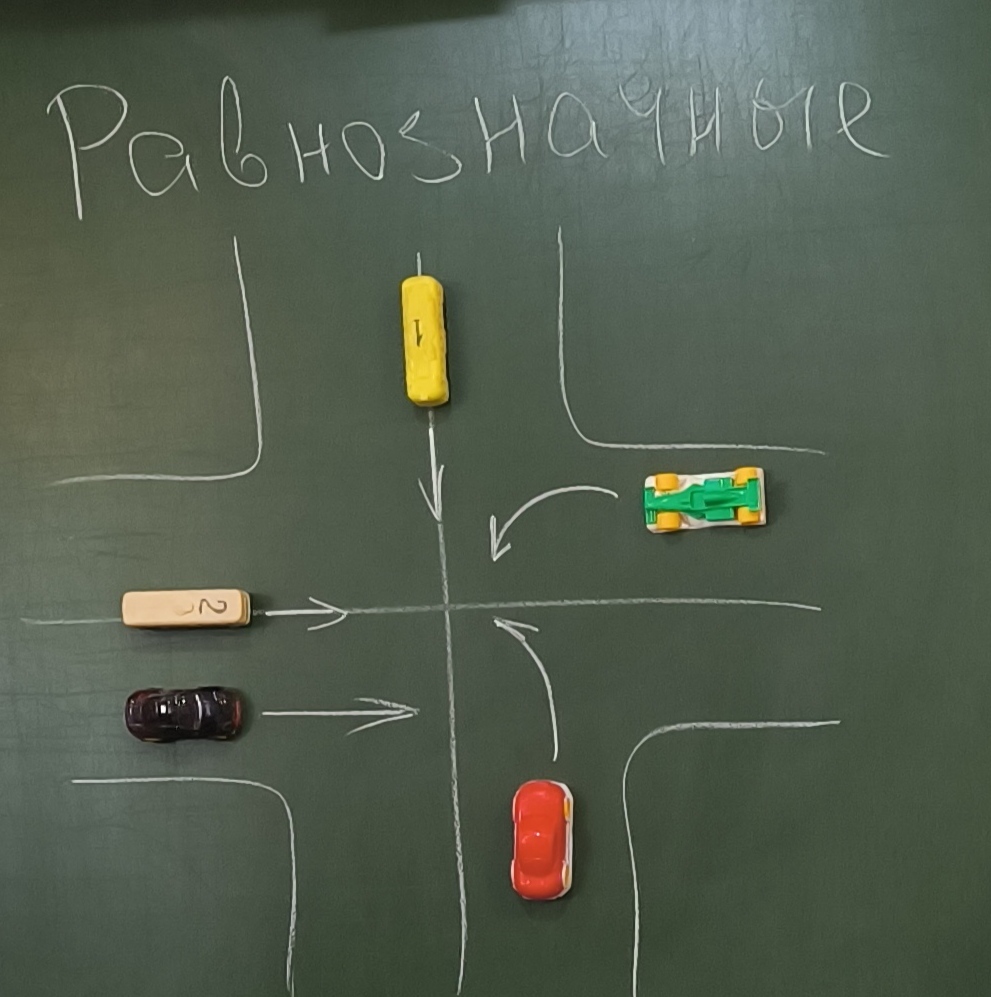 Равнозначные
1
2